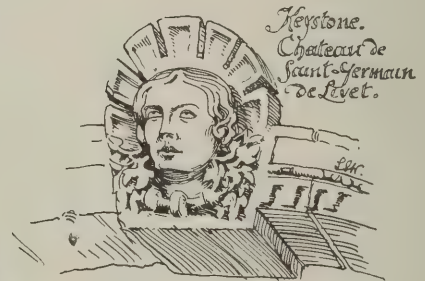 Keystone.
Chateau de
Saint Germain
de Livet.